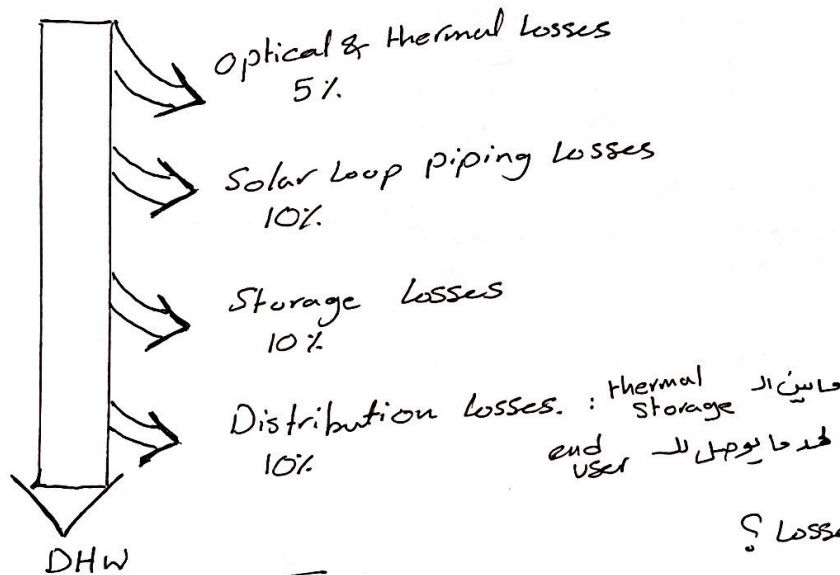 Optical & thermal Losses
5%
Solar Loop piping Losses
10%
Storage Losses
10%
Distribution Losses. : thermal storage مابين ال
10%
لحد ما يوصل لل end user
Losse ؟
DHW